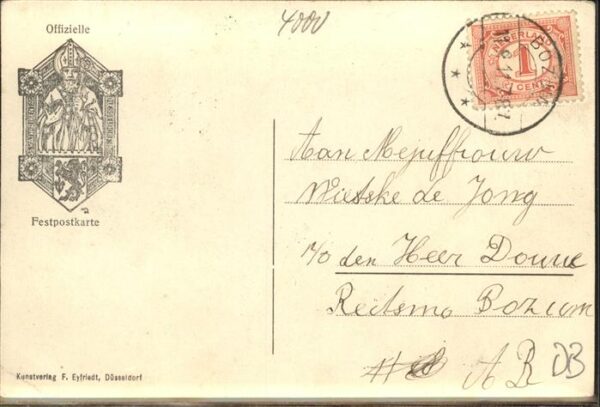 Offizielle
Festpostkarte
4000
BOZUM
NEDERLAND
1
CENT
Aan Mejuffrouw
Wietske de Jong
p/o den Heer Douwe
Reitsma Bozum
A R DB
Kunstverlag F. Eyfriedt, Düsseldorf